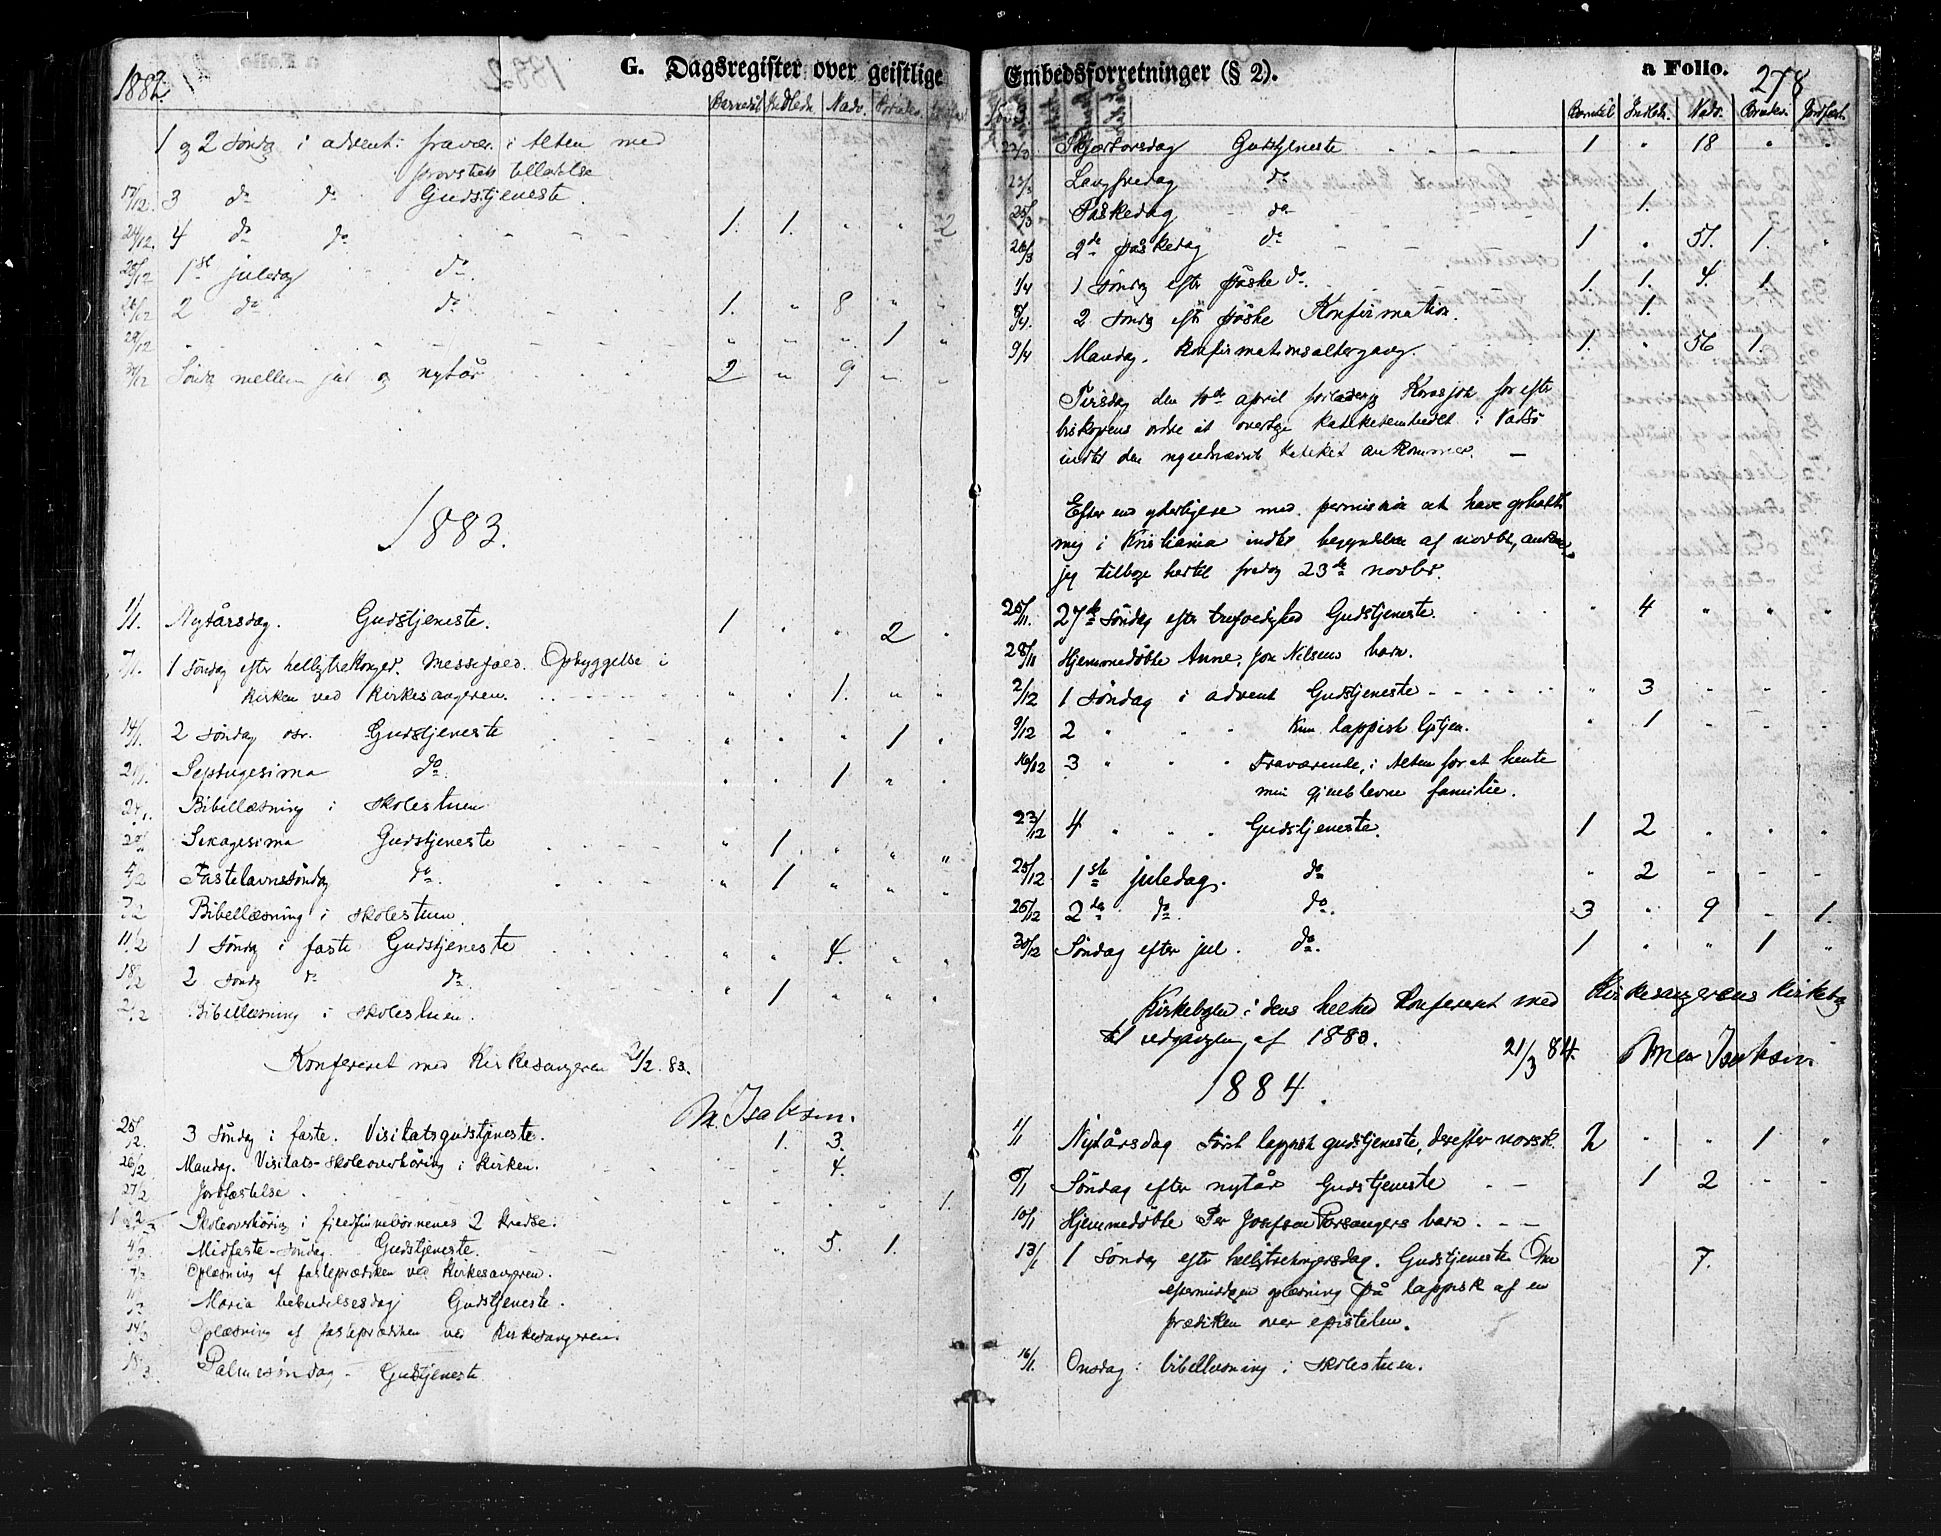 G. Dagsregister over geistlige
1882.
Nadv.
1 og 2 Søndag i advent: fravær. i Alten med
provstens tilladelse
17/12. 3 do do Gudstjeneste.
24/12. 4 do do 1. 1. " " 2
25/12 1ste juledag do
26/12 2 do do 1. " 8 " "
29/12 " " " 1 "
31/12 Søndag mellem jul og nytår 2 " 9 " "
1883.
1/1. Nytårsdag. Gudstjeneste. 1 . . 2 .
7/1. 1 Søndag efter helligtrekonger. Messefald. Opbyggelse i
Kirken ved Kirkesangeren. " . 1. " "
14/1. 2 Søndag Gudstjeneste " " " 1 .
21/1. Septugesima do. " " 1 " .
Bibellæsning i Skolestuen
Sexagesima Gudstjeneste " 1 . " "
4/2 Fastelavnssøndag do. " 1 " " .
7/2 Bibellæsning i Skolestuen.
11/2 1 Søndag i faste Gudstjeneste " " 4. " .
18/2 2 Søndag do do. " 1 " " .
21/2 Bibellæsning i Skolestuen.
Konfereret med Kirkesangeren 21/2. 83.
M. Isaksen.
25/2. 3 Søndag i faste. Visitatsgudstjeneste. 1. 3.
26/2 Mandag. Visitats-Skoleoverhøring i Kirken. 4.
27/2 Jordfæstelse. 1.
Skoleoverhøring i fjeldfinnebørnenes 2 Kredse.
4/3 Midfaste-Søndag. Gudstjeneste. " 5. 1.
7/3 Oplæsning af fasteprædiken ved Kirkesangeren.
11/3 Maria bebudelsesdag Gudstjeneste.
14/3 Oplæsning af fasteprædiken ved Kirkesangeren.
18/3. Palmesøndag - Gudstjeneste.
Embedsforretninger (§ 2).
a Folio. 278
1883
Nadv.
22/3 Skjærtorsdag Gudstjeneste 1 " 18 " "
23/3 Langfredag do
25/3 Påskedag do 1.
26/3 2de påskedag do 1 " 51. 1. "
1/4 1 Søndag efter påske do. 1. 1. 4. 1.
8/4 2 Søndag efter påske Konfirmation. 1.
9/4 Mandag. Konfirmationsaltergang. 1. " 56 1.
Tirsdag den 10de april forlader jeg Karasjok for efter
biskopens ordre at overtage kateketembedet i Vadsø
indtil den nyudnævnte kateket ankommer. —
Efter endydermere med permission at have opholdt
mig i Kristiania indtil begyndelsen af novbr,
jeg tilbage hertil fredag 23de novbr.
25/11. 27de Søndag efter trefoldighed Gudstjeneste. " 4 " " "
28/11 Hjemmedøbte Anne, Jon Nilsens barn.
2/12 1 Søndag i advent Gudstjeneste " 3 . . .
9/12 2 " " Kun lappisk Gtjen. " 1 . . .
16/12 3 " " Fraværende, i Alten for at hente
min familie.
23/12 4 " " Gudstjeneste. 1 2 " " "
25/12 1ste juledag. do " 2 - - .
26/12 2de do. do. 3 " 9 - 1.
30/12 Søndag efter jul. do. 1 " " 1 "
Kirkebogen i dens helhed Konfereret med Kirkesangerens Kirkebog
til udgangen af 1883. 21/3 84. Isaksen.
1884.
1/1 Nytårsdag Først lappisk gudstjeneste, derefter norsk. 2 " " 1 "
6/1 Søndag efter nytår Gudstjeneste 1 2 . .
10/1 Hjemmedøbte Per Josefsen Porsangers barn.
13/1 1 Søndag efter helligtrekongersdag. Gudstjeneste Om 7.
eftermiddagen oplæsning på lappisk af en
prædiken over epistelen.
16/1. Onsdag: bibellæsning i Skolestuen.